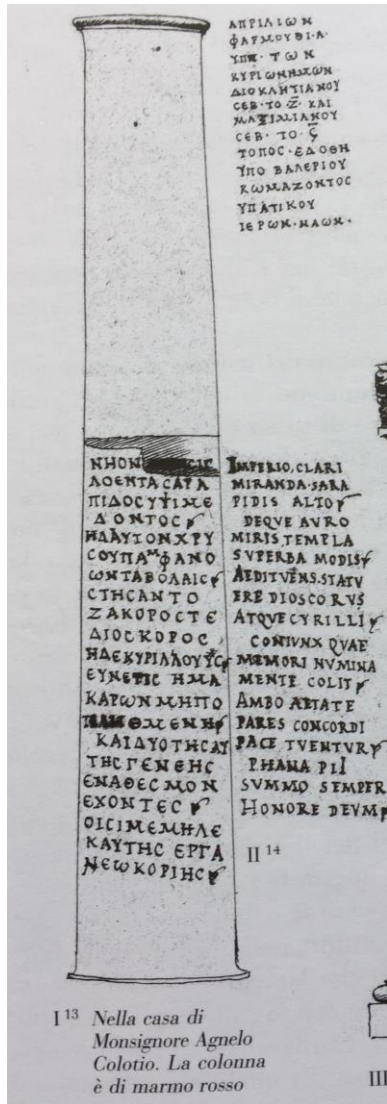 ΑΠΡΙΛΙωΝ
ΦΑΡΜΟΥΘΙ·Α·
ΥΠ· ΤωΝ
ΚΥΡΙωΝΗΜωΝ
ΔΙΟΚΛΗΤΙΑΝΟΥ
CЄΒ·ΤΟ·Ζ̅· ΚΑΙ
ΜΑΞΙΜΙΑΝΟΥ
CЄΒ· ΤΟ·Ϛ̅
ΤΟΠΟC·ЄΔΟΘΗ
ΥΠΟ ΒΑΛЄΡΙΟΥ
ΚωΜΑΖΟΝΤΟC
ΥΠΑΤΙΚΟΥ
ΙЄΡωΝ·ΝΑωΝ·
ΝΗΟΝ
ΛΟЄΝΤΑCΑΡΑ
ΠΙΔΟCΥΨΙΜЄ
ΔΟΝΤΟC
ΗΔΑΥΤΟΝΧΡΥ
CΟΥΠΑΜΦΑΝΟ
ωΝΤΑΒΟΛΑΙC
CΤΗCΑΝΤΟ
ΖΑΚΟΡΟCΤЄ
ΔΙΟCΚΟΡΟC
ΗΔЄΚΥΡΙΛΛΟΥ
ЄΥΝЄΤΙC ΗΜΑ
ΚΑΡωΝ ΜΗΠΟ
ΘΜЄΝΗ
ΚΑΙΔΥΟΤΗCΑΥ
ΤΗCΓЄΝЄΗC
ЄΝΑΘЄCΜΟΝ
ЄΧΟΝΤЄC
ΟΙCΙΜЄΜΗΛЄ
ΚΑΥΤΗC ЄΡΓΑ
ΝЄωΚΟΡΙΗC
IMPERIO, CLARI
MIRANDA·SARA
PIDIS ALTO
DEQUE AVRO
MIRIS TEMPLA
SVPERBA MODIS
AEDITVENS·STATV
ERE DIOSCORVS
ATQVE CYRILLI
CONIVNX QVAE
MEMORI NVMINA
MENTE COLIT
AMBO AETATE
PARES CONCORDI
PACE TVENTVR
PHANA PII
SVMMO SEMPER
HONORE DEVM
II 14
I 13 Nella casa di
Monsignore Agnelo
Colotio. La colonna
è di marmo rosso
III